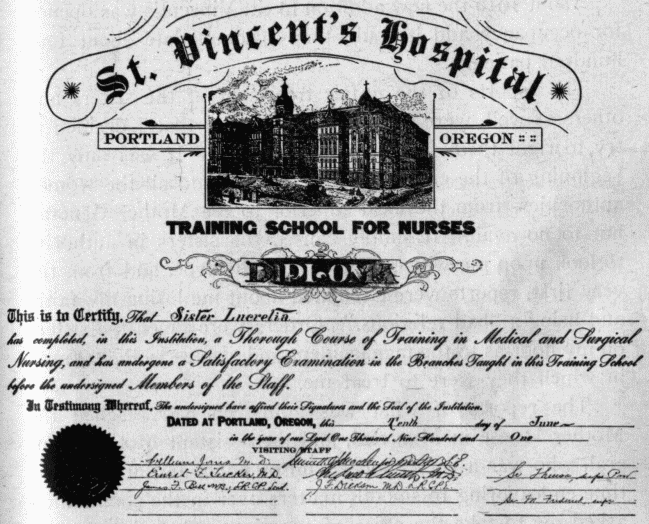 St. Vincent's Hospital
PORTLAND OREGON
TRAINING SCHOOL FOR NURSES
DIPLOMA
This is to Certify, That Sister Lucretia
has completed, in this Institution, a Thorough Course of Training in Medical and Surgical
Nursing, and has undergone a Satisfactory Examination in the Branches Taught in this Training School
before the undersigned Members of the Staff.
In Testimony Whereof, The undersigned have affixed their Signatures and the Seal of the Institution.
DATED AT PORTLAND, OREGON, this Tenth day of June
in the year of our Lord One Thousand Nine Hundred and One
VISITING STAFF
William Jones M.D.
Ernest F. Tucker M.D.
James F.
J.F. Dickson M.D.
Sr. Theresa,
Sr. M. Frederick,